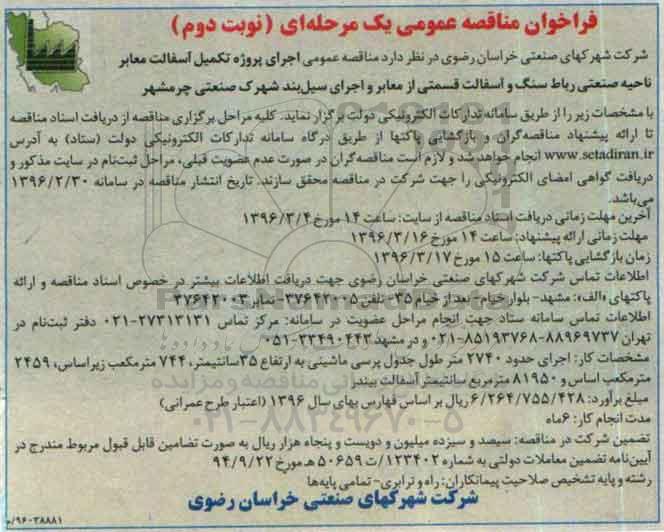 فراخوان مناقصه عمومی یک مرحله‌ای (نوبت دوم)
شرکت شهرکهای صنعتی خراسان رضوی در نظر دارد مناقصه عمومی اجرای پروژه تکمیل آسفالت معابر
ناحیه صنعتی رباط سنگ و آسفالت قسمتی از معابر و اجرای سیل‌بند شهرک صنعتی چرمشهر
با مشخصات زیر را از طریق سامانه تدارکات الکترونیکی دولت برگزار نماید. کلیه مراحل برگزاری مناقصه از دریافت اسناد مناقصه
تا ارائه پیشنهاد مناقصه‌گران و بازگشایی پاکتها از طریق درگاه سامانه تدارکات الکترونیکی دولت (ستاد) به آدرس
www.setadiran.ir انجام خواهد شد و لازم است مناقصه‌گران در صورت عدم عضویت قبلی، مراحل ثبت‌نام در سایت مذکور و
دریافت گواهی امضای الکترونیکی را جهت شرکت در مناقصه محقق سازند. تاریخ انتشار مناقصه در سامانه ۱۳۹۶/۲/۳۰
می‌باشد.
آخرین مهلت زمانی دریافت اسناد مناقصه از سایت: ساعت ۱۴ مورخ ۱۳۹۶/۳/۴
مهلت زمانی ارائه پیشنهاد: ساعت ۱۴ مورخ ۱۳۹۶/۳/۱۶
زمان بازگشایی پاکتها: ساعت ۱۵ مورخ ۱۳۹۶/۳/۱۷
اطلاعات تماس شرکت شهرکهای صنعتی خراسان رضوی جهت دریافت اطلاعات بیشتر در خصوص اسناد مناقصه و ارائه
پاکتهای «الف»: مشهد- بلوار خیام- بعد از خیام ۳۵- تلفن ۳۷۶۴۲۰۰۵- نمابر ۳۷۶۴۲۰۰۳
اطلاعات تماس سامانه ستاد جهت انجام مراحل عضویت در سامانه: مرکز تماس ۲۷۳۱۳۱۳۱-۰۲۱ دفتر ثبت‌نام در
تهران ۸۸۹۶۹۷۳۷-۸۵۱۹۳۷۶۸-۰۲۱ و در مشهد ۳۳۴۹۰۴۴۳-۰۵۱
مشخصات کار: اجرای حدود ۲۷۴۰ متر طول جدول پرسی ماشینی به ارتفاع ۳۵سانتیمتر، ۷۴۴ مترمکعب زیراساس، ۲۴۵۹
مترمکعب اساس و ۸۱۹۵۰ مترمربع سانتیمتر آسفالت بیندر
مبلغ برآورد: ۶/۲۶۴/۷۵۵/۴۲۸ ریال بر اساس فهارس بهای سال ۱۳۹۶ (اعتبار طرح عمرانی)
مدت انجام کار: ۶ماه
تضمین شرکت در مناقصه: سیصد و سیزده میلیون و دویست و پنجاه هزار ریال به صورت تضامین قابل قبول مربوط مندرج در
آیین‌نامه تضمین معاملات دولتی به شماره ۱۲۳۴۰۲/ت ۵۰۶۵۹ هـ مورخ ۹۴/۹/۲۲
رشته و پایه تشخیص صلاحیت پیمانکاران: راه و ترابری- تمامی پایه‌ها
شرکت شهرکهای صنعتی خراسان رضوی
۹۶۰۳۸۸۸۱/م
۰۲۱-۸۸۳۴۹۶۷۰-۵